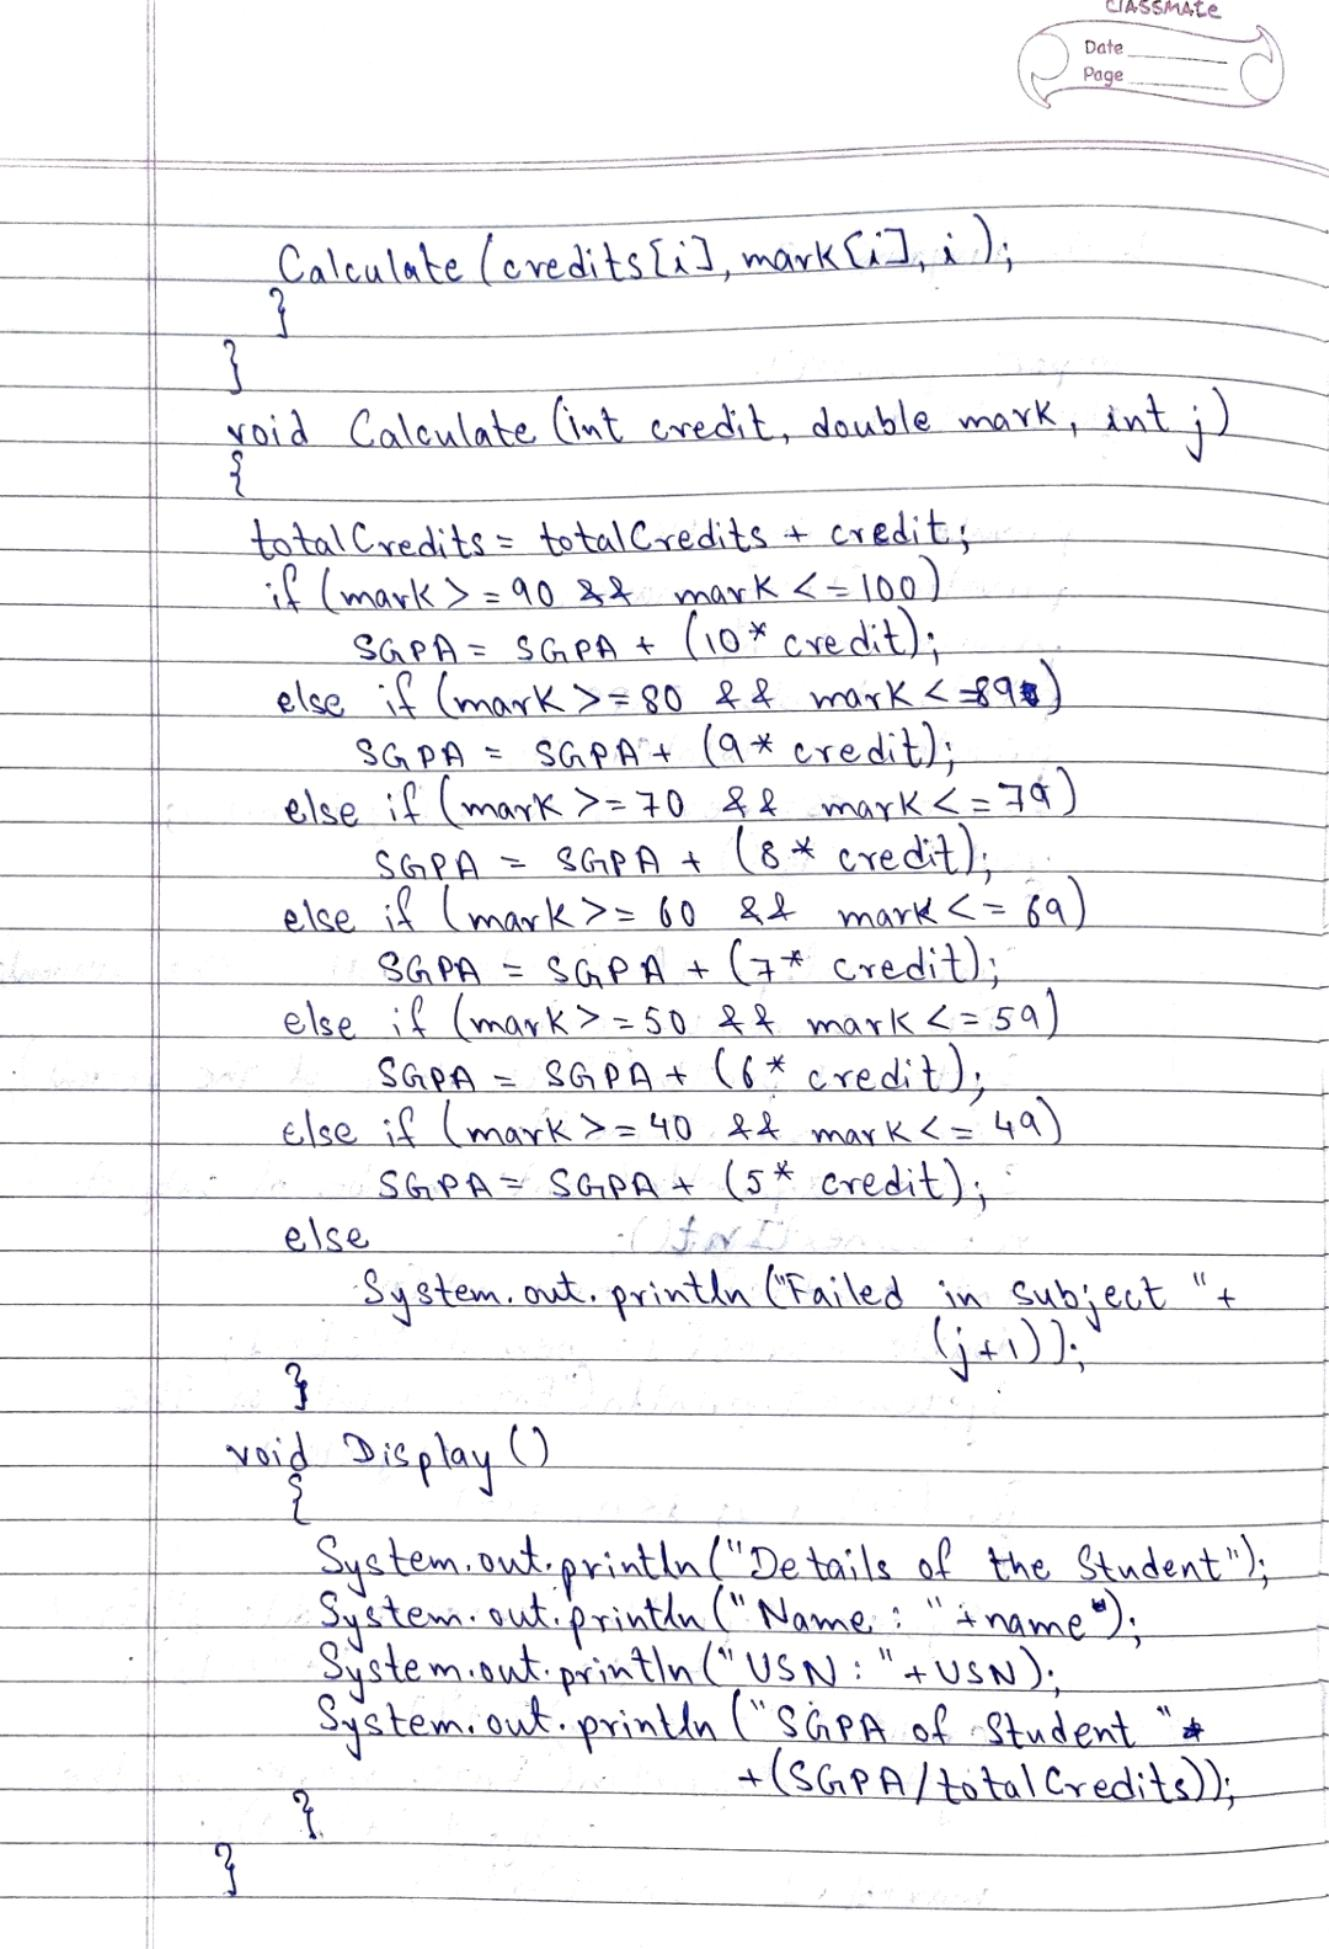 classmate
Date
Page
Calculate (credits[i], mark[i], i);
}
}
void Calculate (int credit, double mark, int j)
{
totalCredits = totalCredits + credit;
if (mark >= 90 && mark <= 100)
SGPA = SGPA + (10 * credit);
else if (mark >= 80 && mark <= 89)
SGPA = SGPA + (9 * credit);
else if (mark >= 70 && mark <= 79)
SGPA = SGPA + (8 * credit);
else if (mark >= 60 && mark <= 69)
SGPA = SGPA + (7 * credit);
else if (mark >= 50 && mark <= 59)
SGPA = SGPA + (6 * credit);
else if (mark >= 40 && mark <= 49)
SGPA = SGPA + (5 * credit);
else
System.out.println ("Failed in subject " +
(j+1));
}
void Display ()
{
System.out.println ("Details of the Student");
System.out.println (" Name : " + name);
System.out.println (" USN : " + USN);
System.out.println (" SGPA of Student "
+ (SGPA / totalCredits));
}
}